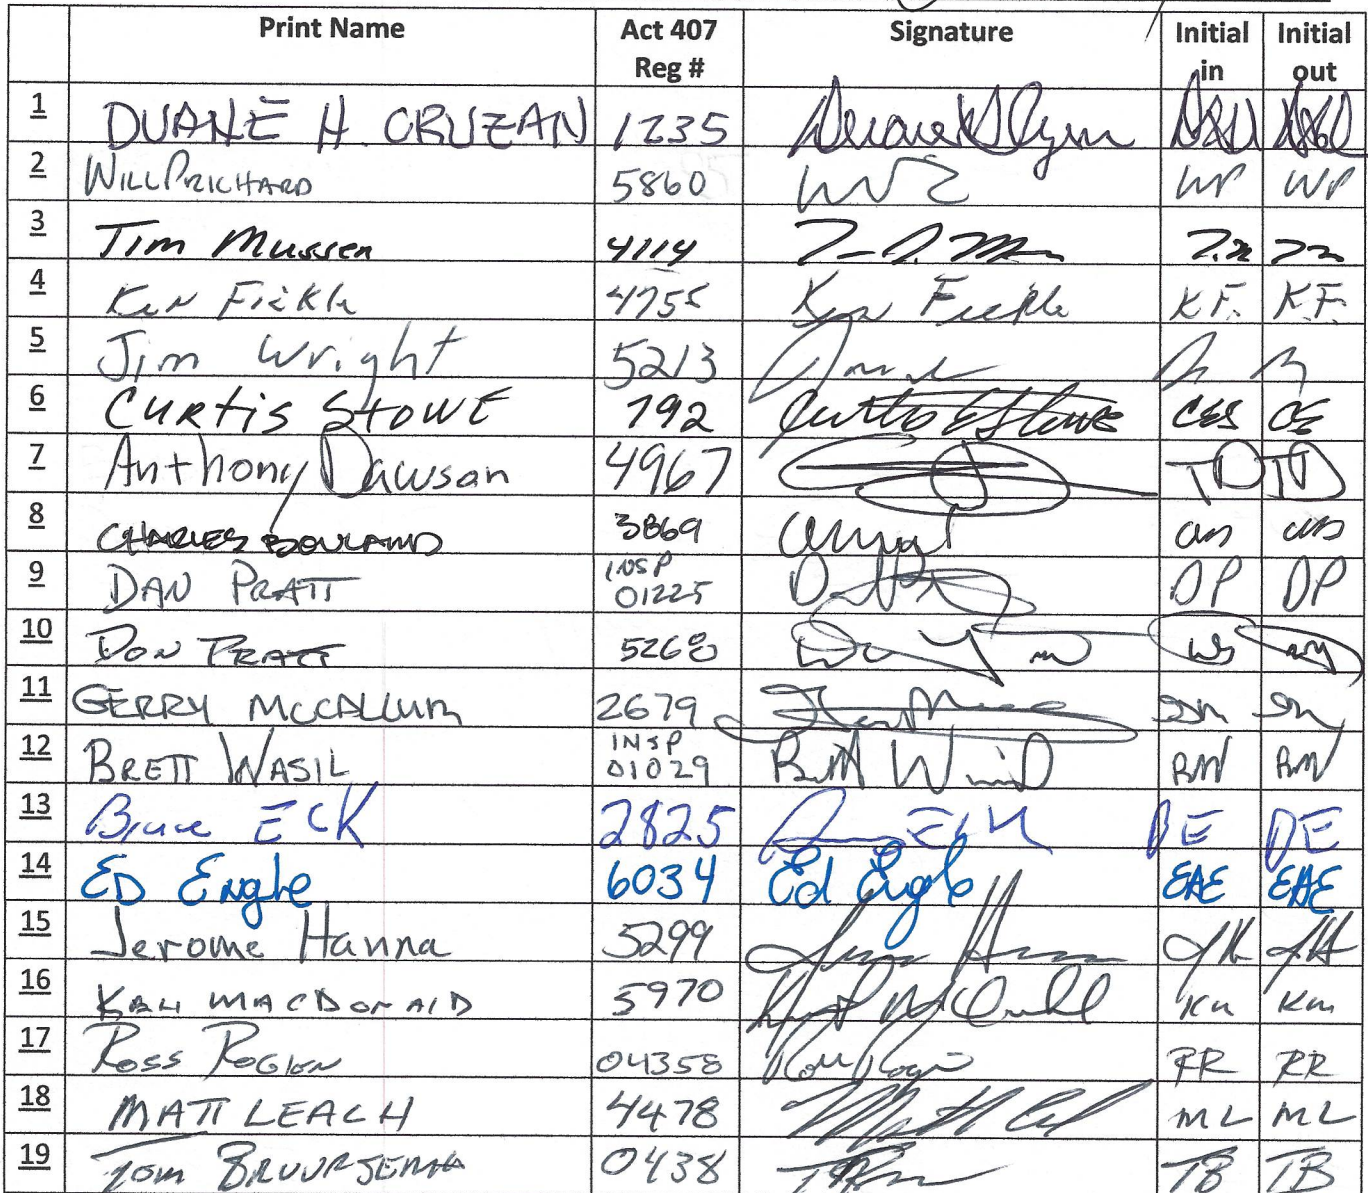 Print Name Act 407 Reg # Signature Initial in Initial out
1 DUANE H. CRUZAN 1235
2 WILL PRICHARD 5860 WP WP
3 Tim Mussen 4114 T.M
4 Ken Fickle 4755 Ken Fickle K.F. K.F.
5 Jim Wright 5213
6 CURtis STOWE 792 Curtis E Stowe CES CE
7 Anthony Dawson 4967 TD TD
8 CHARLES BOULARD 3869
9 DAN PRATT INSP 01225 DP DP
10 DON PRATT 5268
11 GERRY MCCALLUM 2679
12 BRETT WASIL INSP 01029 BW BW
13 Bruce ECK 2825 BE BE
14 ED Engle 6034 Ed Engle EAE EAE
15 Jerome Hanna 5299 JH JH
16 MACDONALD 5970 KM KM
17 Ross 04358 RR RR
18 MATT LEACH 4478 ML ML
19 Tom 0438 TB TB